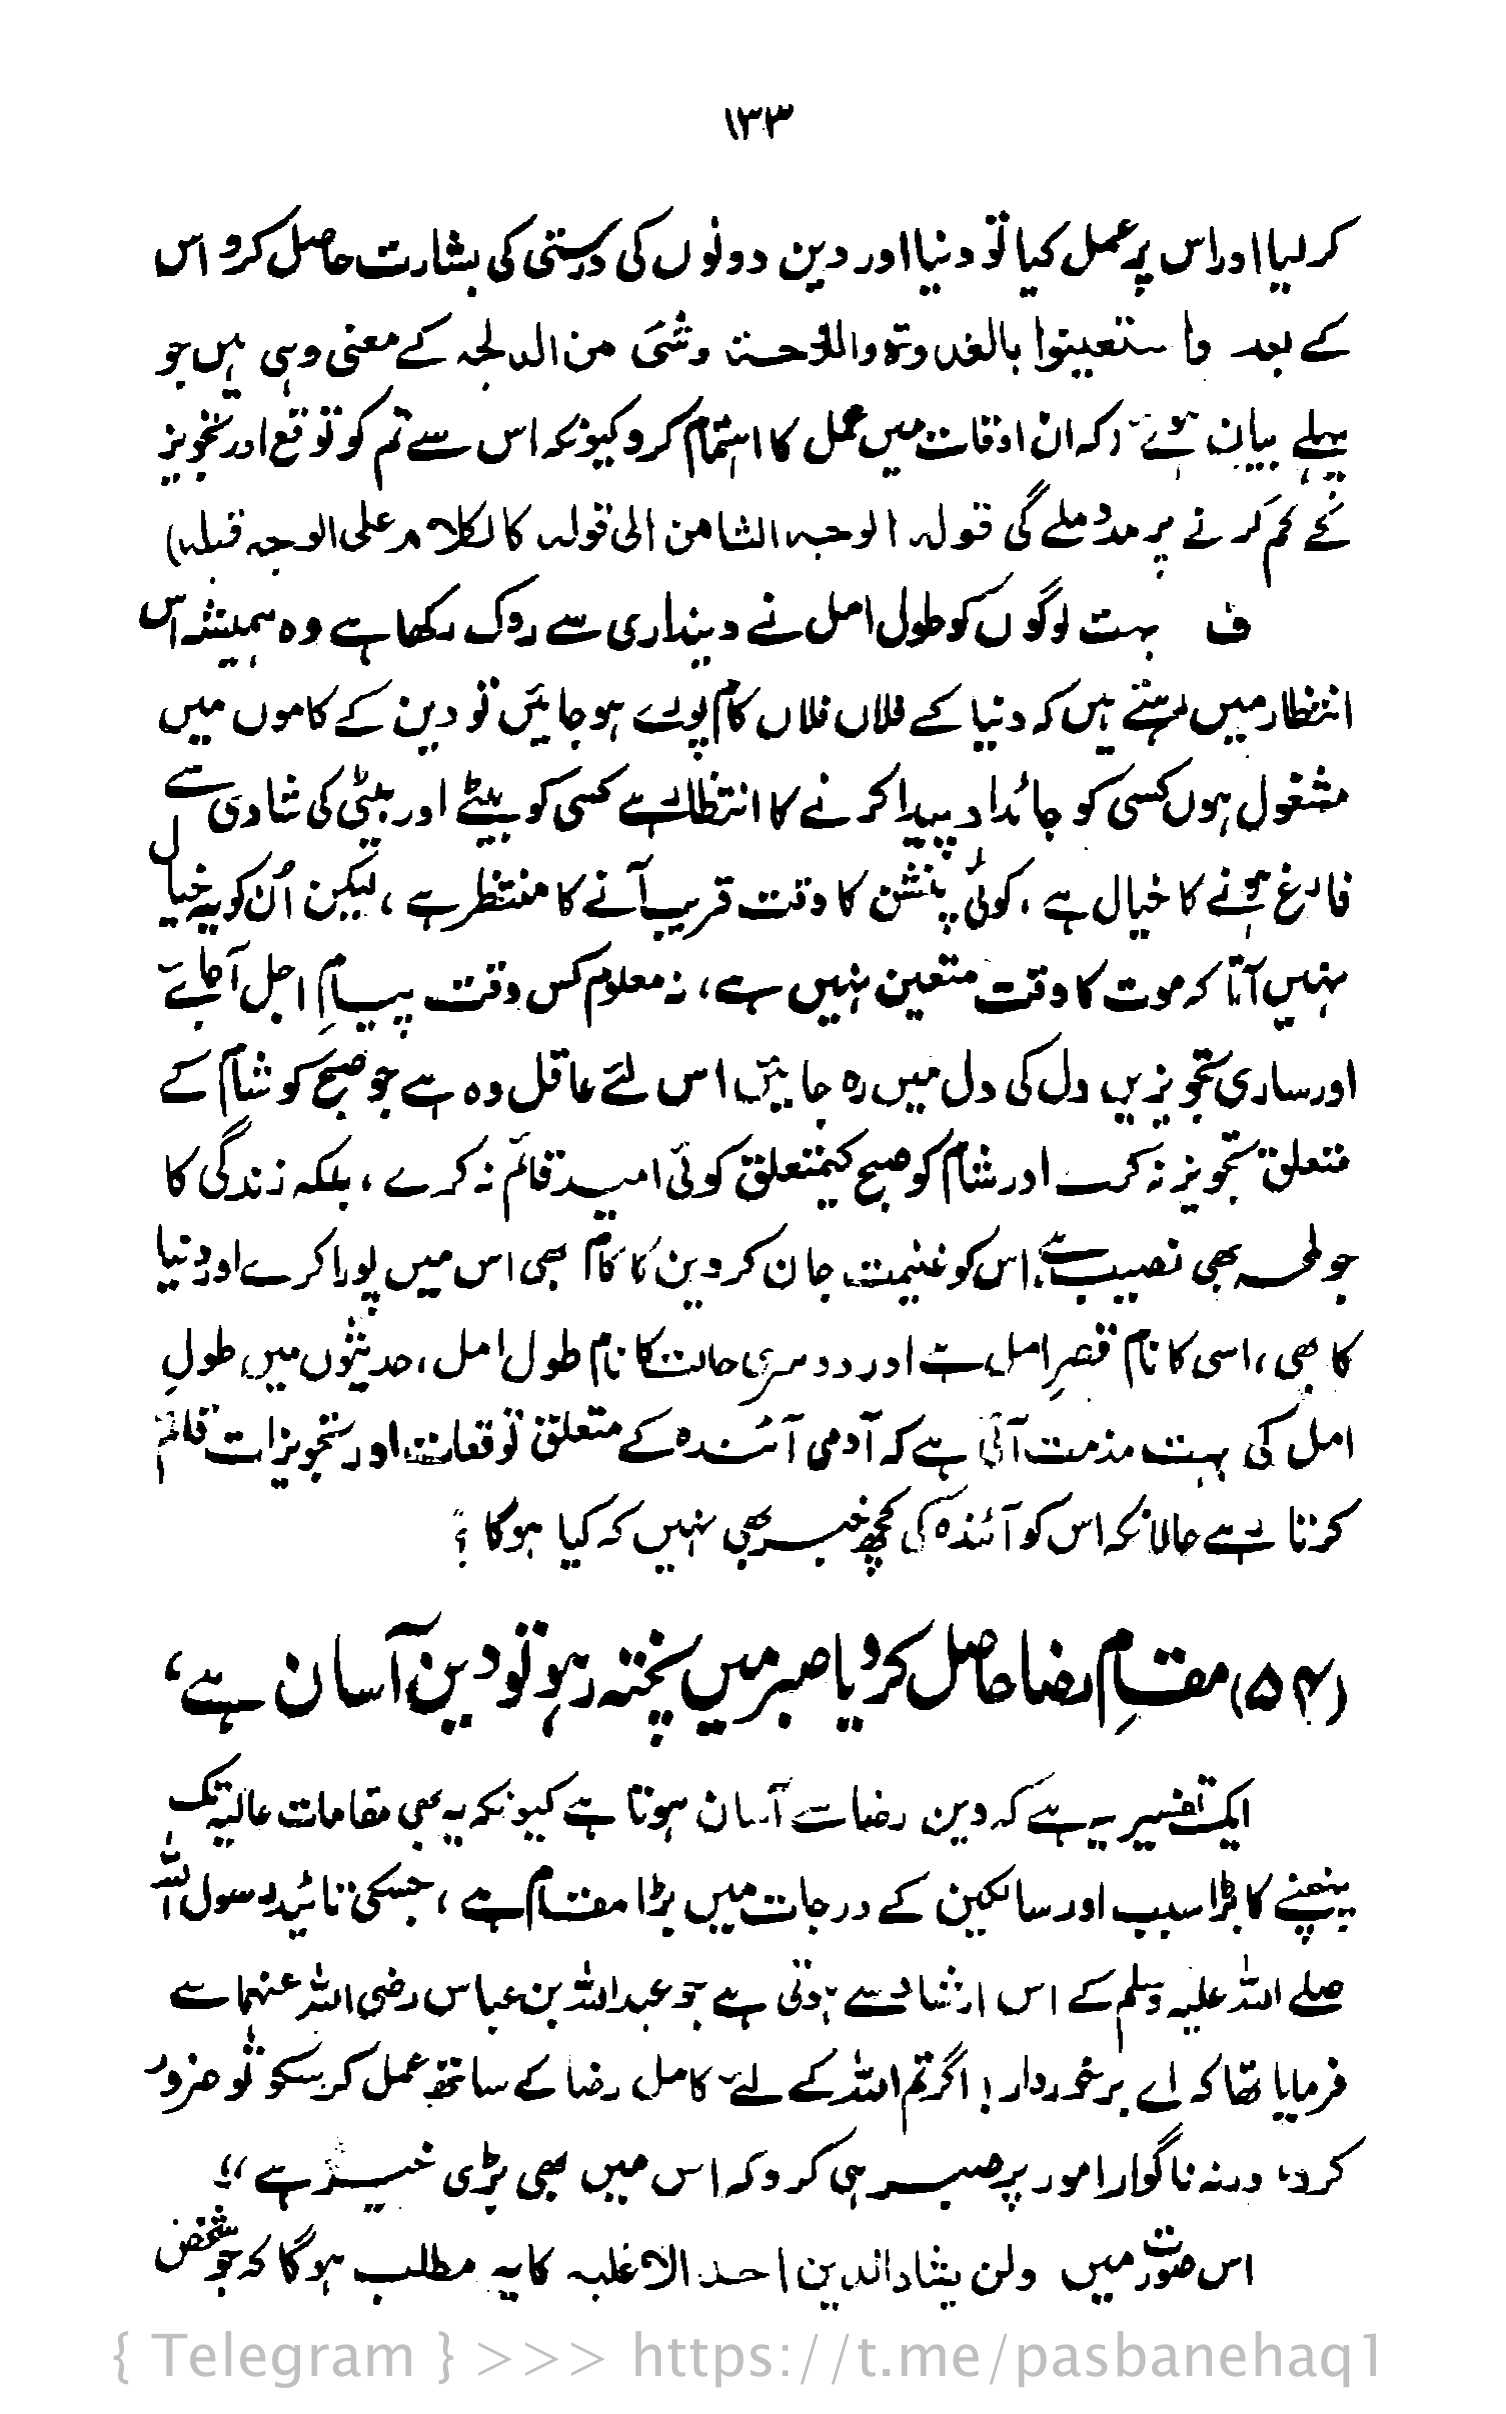 ۱۳۳
کر لیا اور اس پر عمل کیا تو دنیا اور دین دونوں کی درستی کی بشارت حاصل کرو اس
کے بعد واستعینوا بالغدوۃ والروحۃ وشیٔ من الدلجہ کے معنی وہی ہیں جو
پہلے بیان ہوئے (کہ ان اوقات میں عمل کا اہتمام کرو کیونکہ اس سے تم کو توقع اور تجویز
کے کم کرنے پر مدد ملے گی قولہ الوجہ الثامن الی قولہ کالکلام علی الوجہ قبلہ)
ف بہت لوگوں کو طول امل نے دینداری سے روک رکھا ہے وہ ہمیشہ اس
انتظار میں رہتے ہیں کہ دنیا کے فلاں فلاں کام پورے ہو جائیں تو دین کے کاموں میں
مشغول ہوں کسی کو جائداد پیدا کرنے کا انتظار ہے کسی کو بیٹے اور بیٹی کی شادی سے
فارغ ہونے کا خیال ہے، کوئی پنشن کا وقت قریب آنے کا منتظر ہے، لیکن اُن کو یہ خیال
نہیں آتا کہ موت کا وقت متعین نہیں ہے، نہ معلوم کس وقت پیامِ اجل آجائے
اور ساری تجویزیں دل کی دل میں رہ جائیں اس لئے عاقل وہ ہے جو صبح کو شام کے
متعلق تجویز نہ کرے اور شام کو صبح کیمتعلق کوئی امید قائم نہ کرے، بلکہ زندگی کا
جو لمحہ بھی نصیب ہے، اس کو غنیمت جان کر دین کا کام بھی اس میں پورا کرے اور دنیا
کا بھی، اسی کا نام قصرِ امل ہے اور دوسری حالت کا نام طول امل، حدیثوں میں طولِ
امل کی بہت مذمت آئی ہے کہ آدمی آئندہ کے متعلق توقعات اور تجویزات قائم
کرتا ہے حالانکہ اس کو آئندہ کی کچھ خبر بھی نہیں کہ کیا ہوگا ؟
(۵۴) مقامِ رضا حاصل کرو یا صبر میں پختہ رہو تو دین آسان ہے،
ایک تفسیر یہ ہے کہ دین رضا سے آسان ہوتا ہے کیونکہ یہ بھی مقامات عالیہ تک
پہنچنے کا بڑا سبب اور سالکین کے درجات میں بڑا مقام ہے، جسکی تائید رسول اللہ
صلے اللہ علیہ وسلم کے اس ارشاد سے ہوتی ہے جو عبداللہ بن عباس رضی اللہ عنہما سے
فرمایا تھا کہ اے برخوردار! اگر تم اللہ کے لئے کامل رضا کے ساتھ عمل کر سکو تو ضرور
کرو، ورنہ ناگوار امور پر صبر ہی کرو کہ اس میں بھی بڑی خیر ہے"
اس صورت میں ولن یشاد الدین احد الا غلبہ کا یہ مطلب ہوگا کہ جو شخص
{ Telegram } >>> https://t.me/pasbanehaq1